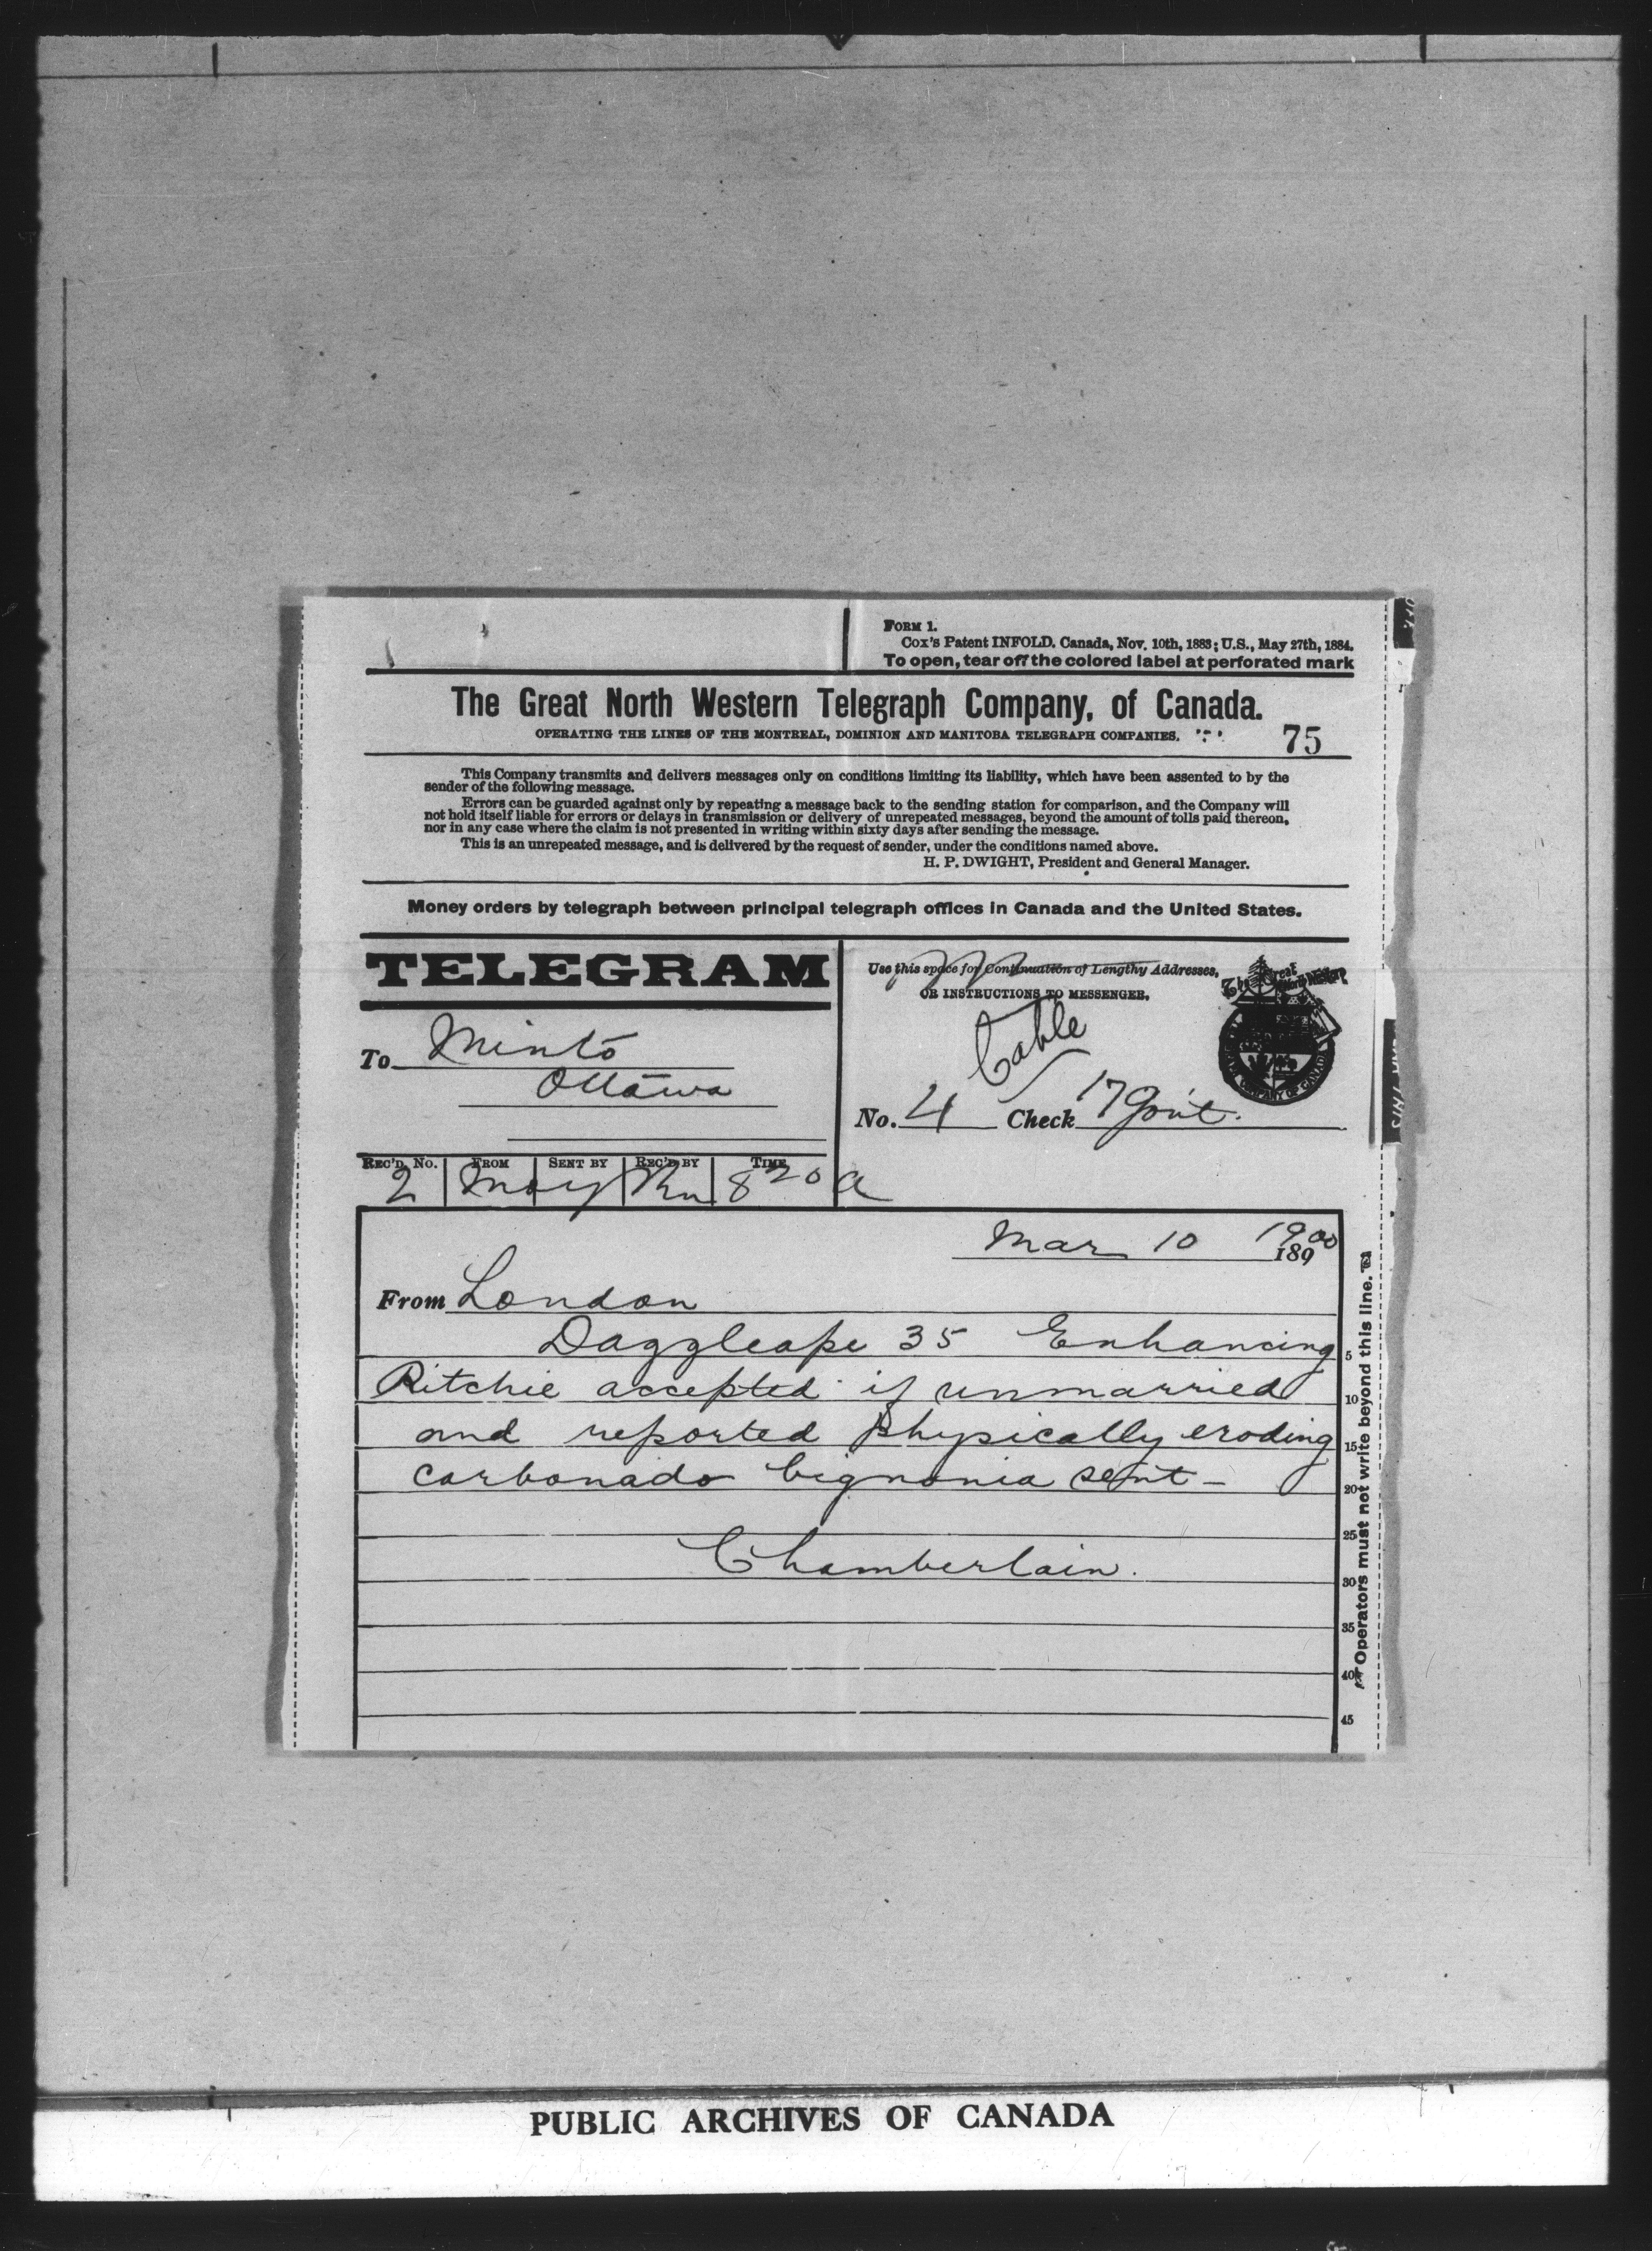 FORM 1.
Cox's Patent INFOLD. Canada, Nov. 10th, 1883; U.S., May 27th, 1884.
To open, tear off the colored label at perforated mark
The Great North Western Telegraph Company, of Canada.
OPERATING THE LINES OF THE MONTREAL, DOMINION AND MANITOBA TELEGRAPH COMPANIES.
75
This Company transmits and delivers messages only on conditions limiting its liability, which have been assented to by the
sender of the following message.
Errors can be guarded against only by repeating a message back to the sending station for comparison, and the Company will
not hold itself liable for errors or delays in transmission or delivery of unrepeated messages, beyond the amount of tolls paid thereon,
nor in any case where the claim is not presented in writing within sixty days after sending the message.
This is an unrepeated message, and is delivered by the request of sender, under the conditions named above.
H. P. DWIGHT, President and General Manager.
Money orders by telegraph between principal telegraph offices in Canada and the United States.
TELEGRAM
Use this space for Continuation of Lengthy Addresses,
OR INSTRUCTIONS TO MESSENGER.
Cable
To Minto
Ottawa
No. 4 Check 17 Govt.
REC'D. No. FROM SENT BY REC'D BY TIME
2 8 20 a
Mar 10 1900
189
From London
Daggleape 35 Enhancing 5
Ritchie accepted if unmarried 10
and reported physically eroding 15
carbonado bignonia sent - 20
25
Chamberlain. 30
35
40
45
Operators must not write beyond this line.
PUBLIC ARCHIVES OF CANADA